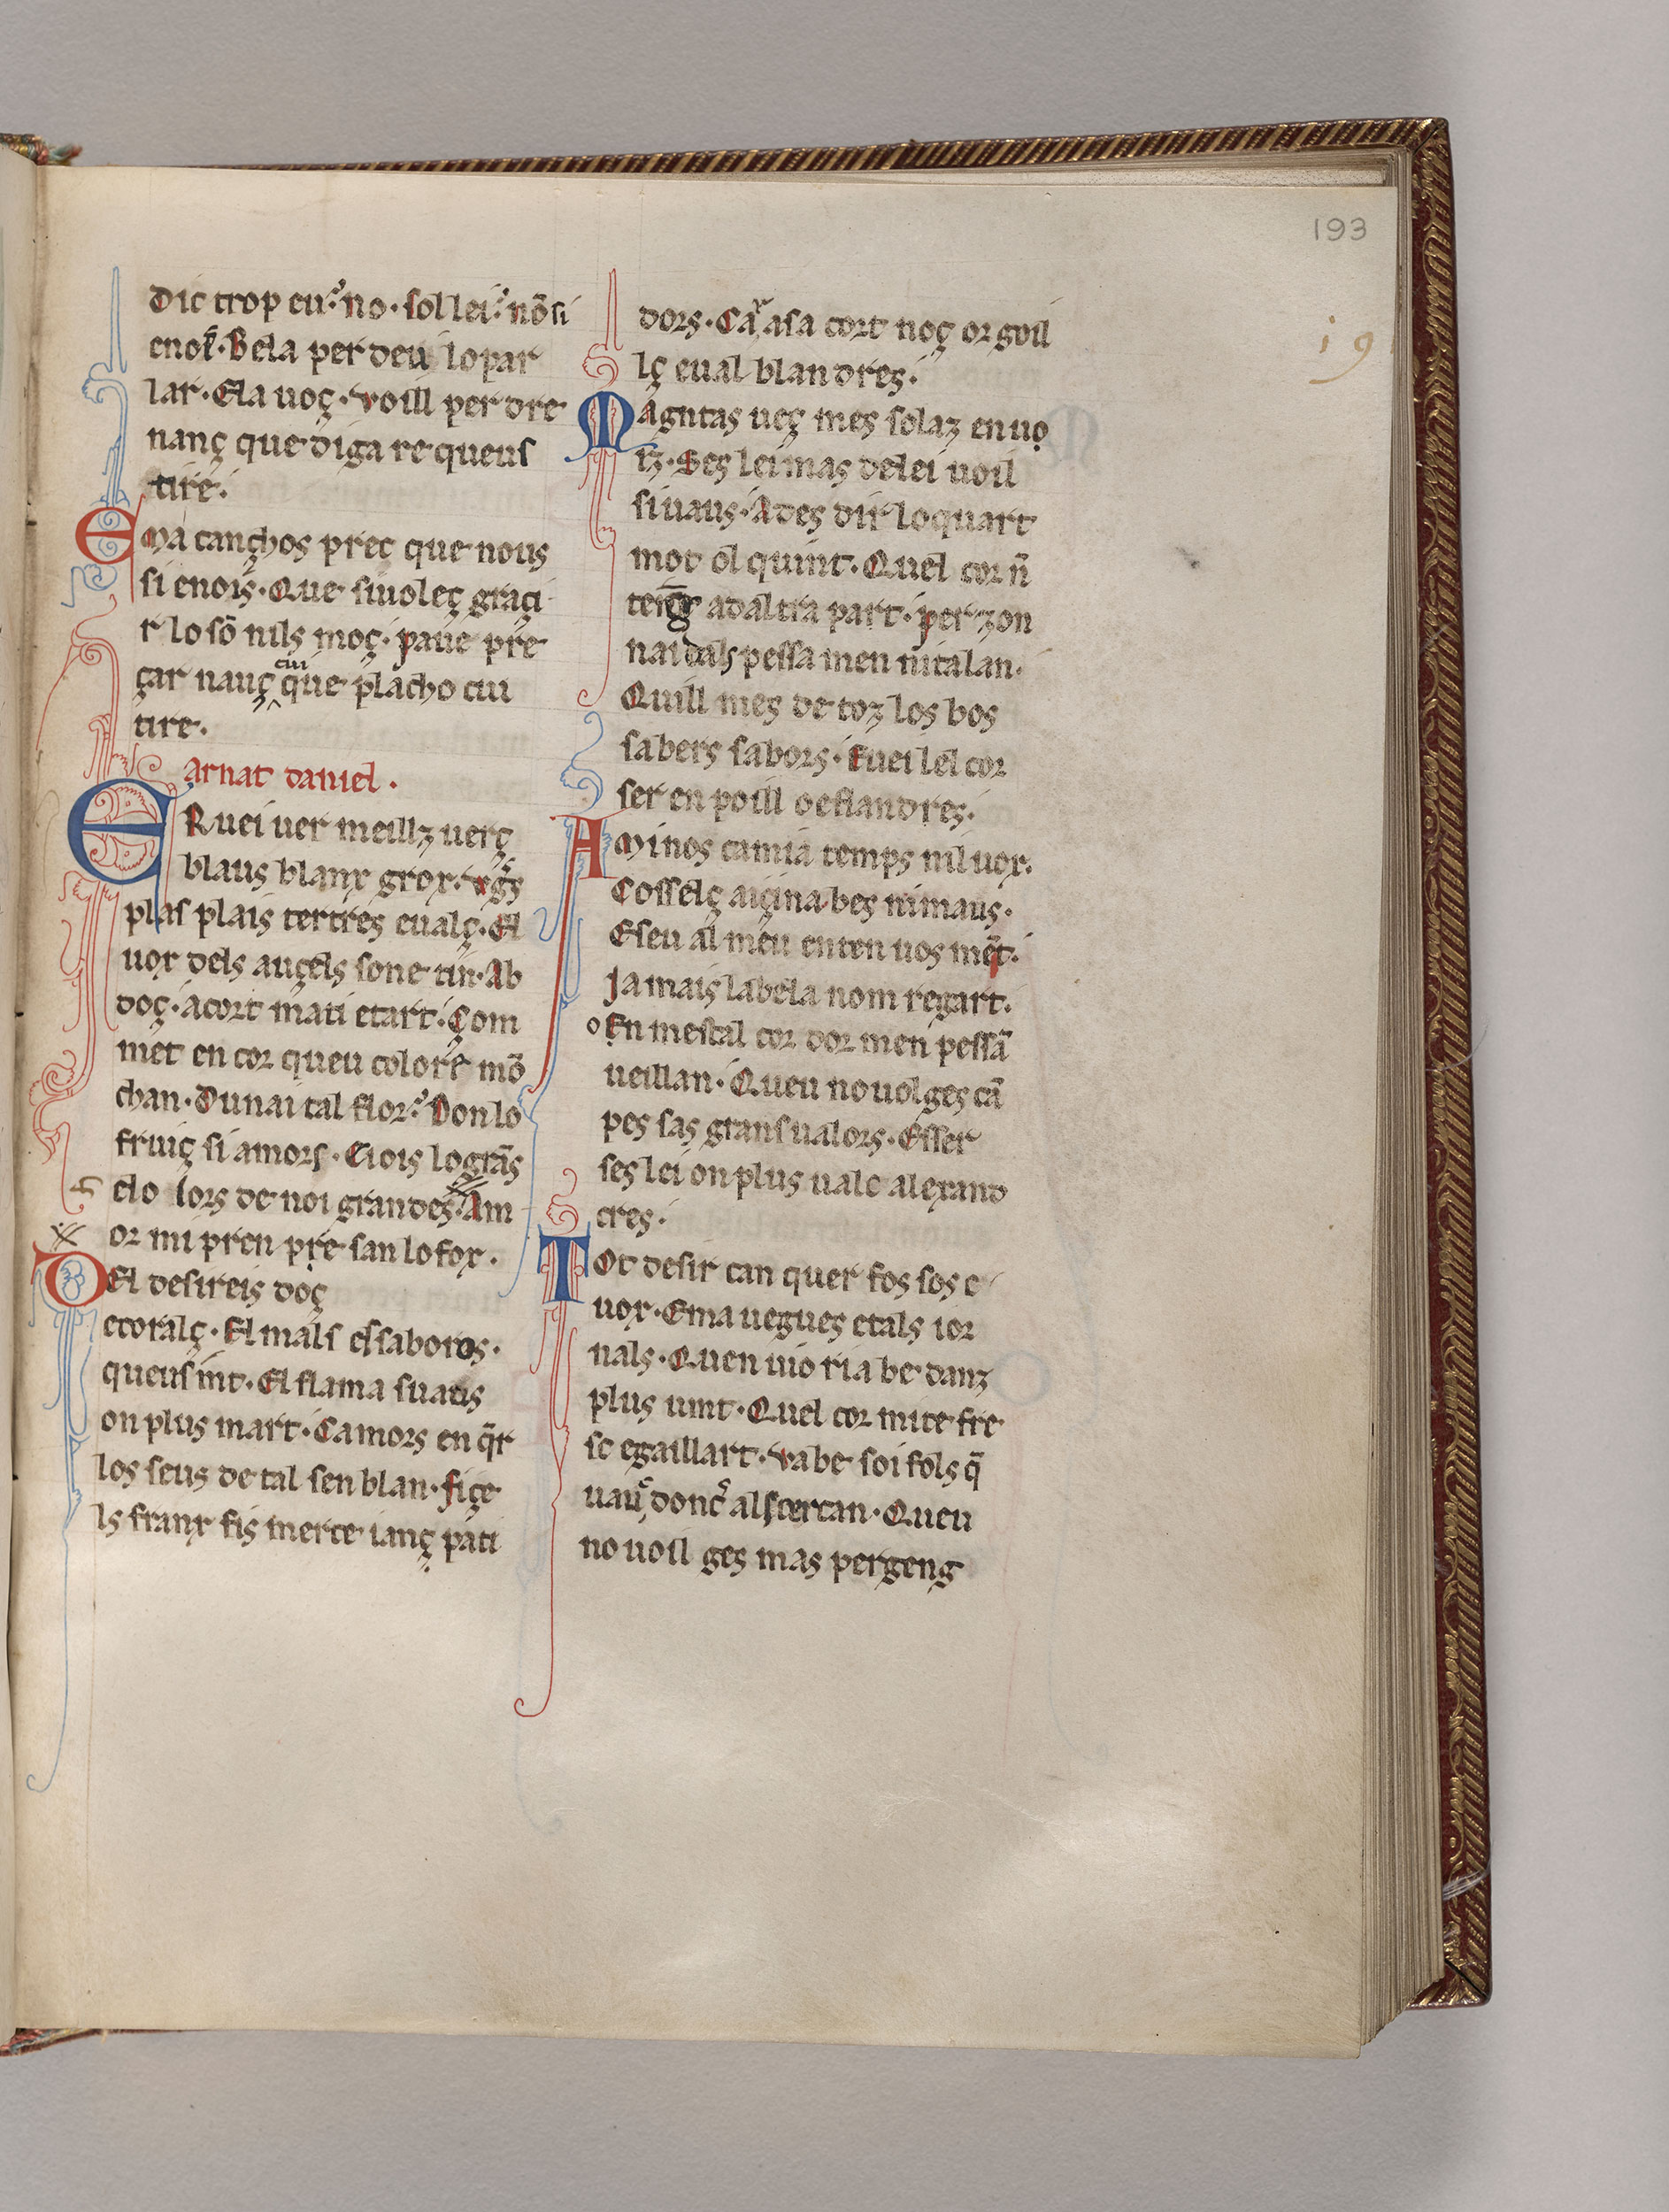 193
19
dic trop eu·no·sol lei·nō si
enoẏ·Bela per deu lo par
lar·Ela uoç·voill per dre
nanç que diga re queus
tire·
Ema cançhos prec que nous
si enois·Que siuoleç graçi
r lo sō nils moç·paue pre
çar nauç cui que placho cui
tire·
Arnat daniel·
ERuei uer meillz uerç
blaus blanx grox·
plas plais tertres eualç·El
uox dels auçels sone tin·Ab
doç·acort mati etart·Çom
met en cor queu colore mō
chan·Dunai tal flor·Donlo
fruiç si amors·Eiois lo grās
elo lors de noi grandes·Am
or mi pren pre san lo fox·
DEl desireis doç
ecoralç·El mals essaboros·
queus int·El flama suaus
on plus mart·Camors en q̄r
los seus de tal sen blan·fiçe
ls franx fis merce ianç pati
dors·Car asa cort noç orgoil
lç eual blan dres·
Magntas ueç mes solaz en uo
rz·Ses lei mas delei uoil
si uaus·Ades dir lo quart
mot ol quint·Quel cor n̄
teing adaltra part·per zon
nai dals pessa men nitalan·
Quill mes de toz los bos
sabers sabors·Euei lel cor
ser en poill oeflandres·
AMinos camia temps nil uox·
Cosselç aiçina bes nimaus·
Eseu al meu enten uos mēt·
Ja mais labela nom regart·
o En mestal cor dor men pessā
ueillan·Queu no uol ges cā
pes sas grans ualors·Esser
ses lei on plus ualc alexand
cres·
TOt desir can quer fos sos e
uox·Ema uegues etals ior
nals·Quen uio ria be danz
plus uint·Quel cor mite fre
sc egaillart·va be soi fols q̄
uau donc als cercan·Queu
no uoil ges mas per geng